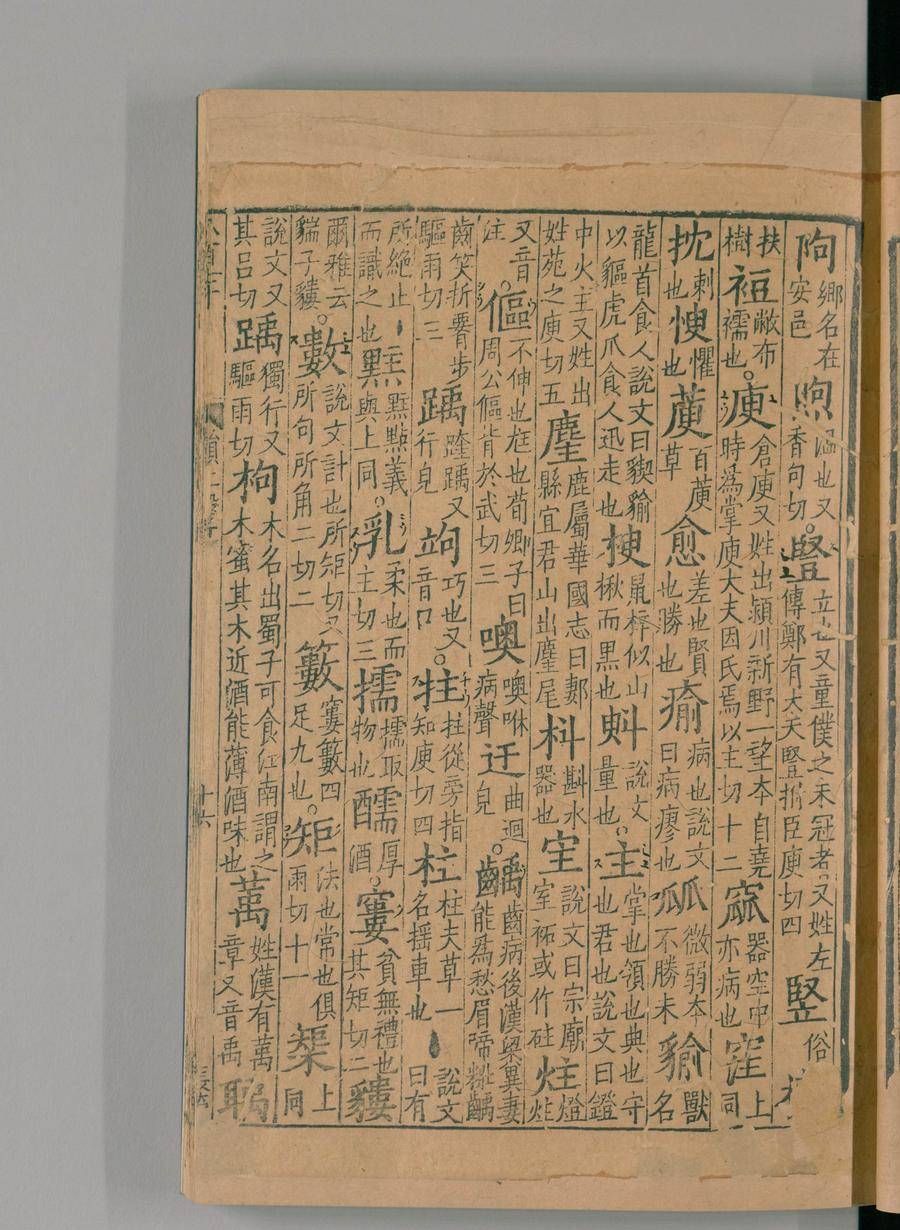 鄉名在安邑 煦 溫也又香句切 豎 立也又童僕之未冠者又姓左傳鄭有大夫豎拊臣庾切四 竪 俗
扶樹 裋 敝布襦也 庾 倉庾又姓出潁川新野一望本自堯時爲掌庾大夫因氏焉以主切十二 寙 器空中亦病也 窳 上同
抌 刺也 懼也 百 草 愈 差也賢也勝也 瘉 病也說文曰病瘳也 㼌 微弱本不勝末 貐 獸名
龍首食人說文曰猰貐以貙虎爪食人迅走也 楰 鼠梓似山楸而黑也 斞 說文量也 主 掌也領也典也守也君也說文曰鐙
中火主又姓出姓苑之庾切五 麈 鹿屬華國志曰郪縣宜君山出麈尾 枓 斟水器也 宔 說文曰宗廟宔祏或作砫 炷 燈炷
又音注 傴 不伸也尪也荀卿子曰周公傴背於武切三 噢 噢咻病聲 迂 曲迴皃 齲 齒病後漢梁冀妻能爲愁眉啼粧齲
齒笑折腰步驅雨切三 踽 踽又行皃 竘 巧也又音口 拄 拄從旁指知庾切四 柱 柱夫草一名揺車也 丶 說文曰有
所絶止丶而識之也 點義與上同 乳 柔也而主切三 擩 擩取物也 醹 厚酒 寠 貧無禮也其矩切二 貗
爾雅云貒子貗 數 說文計也所矩切又所句所角二切二 籔 窶籔四足九也 矩 法也常也俱雨切十一 榘 上同
說文又其呂切 踽 獨行又驅雨切 枸 木名出蜀子可食江南謂之木蜜其木近酒能薄酒味也 萭 姓漢有萭章又音禹 聥
十六